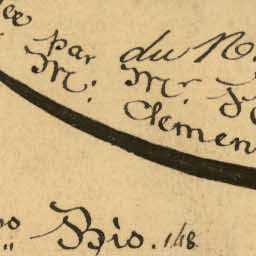 par du N.
M. Mr.
Clemen
Bis. 148